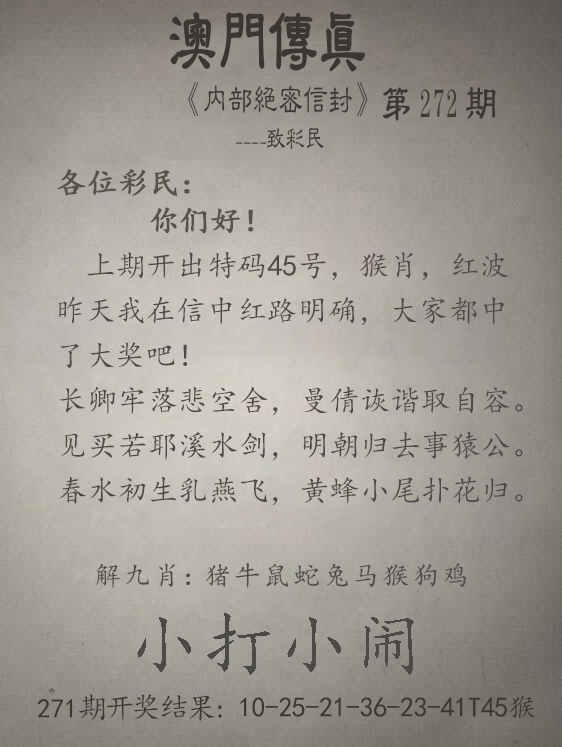 澳門傳眞
《内部絕密信封》第272期
----致彩民
各位彩民：
你们好！
上期开出特码45号，猴肖，红波
昨天我在信中红路明确，大家都中
了大奖吧！
长卿牢落悲空舍，曼倩诙谐取自容。
见买若耶溪水剑，明朝归去事猿公。
春水初生乳燕飞，黄蜂小尾扑花归。
解九肖：猪牛鼠蛇兔马猴狗鸡
小打小闹
271期开奖结果：10-25-21-36-23-41T45猴